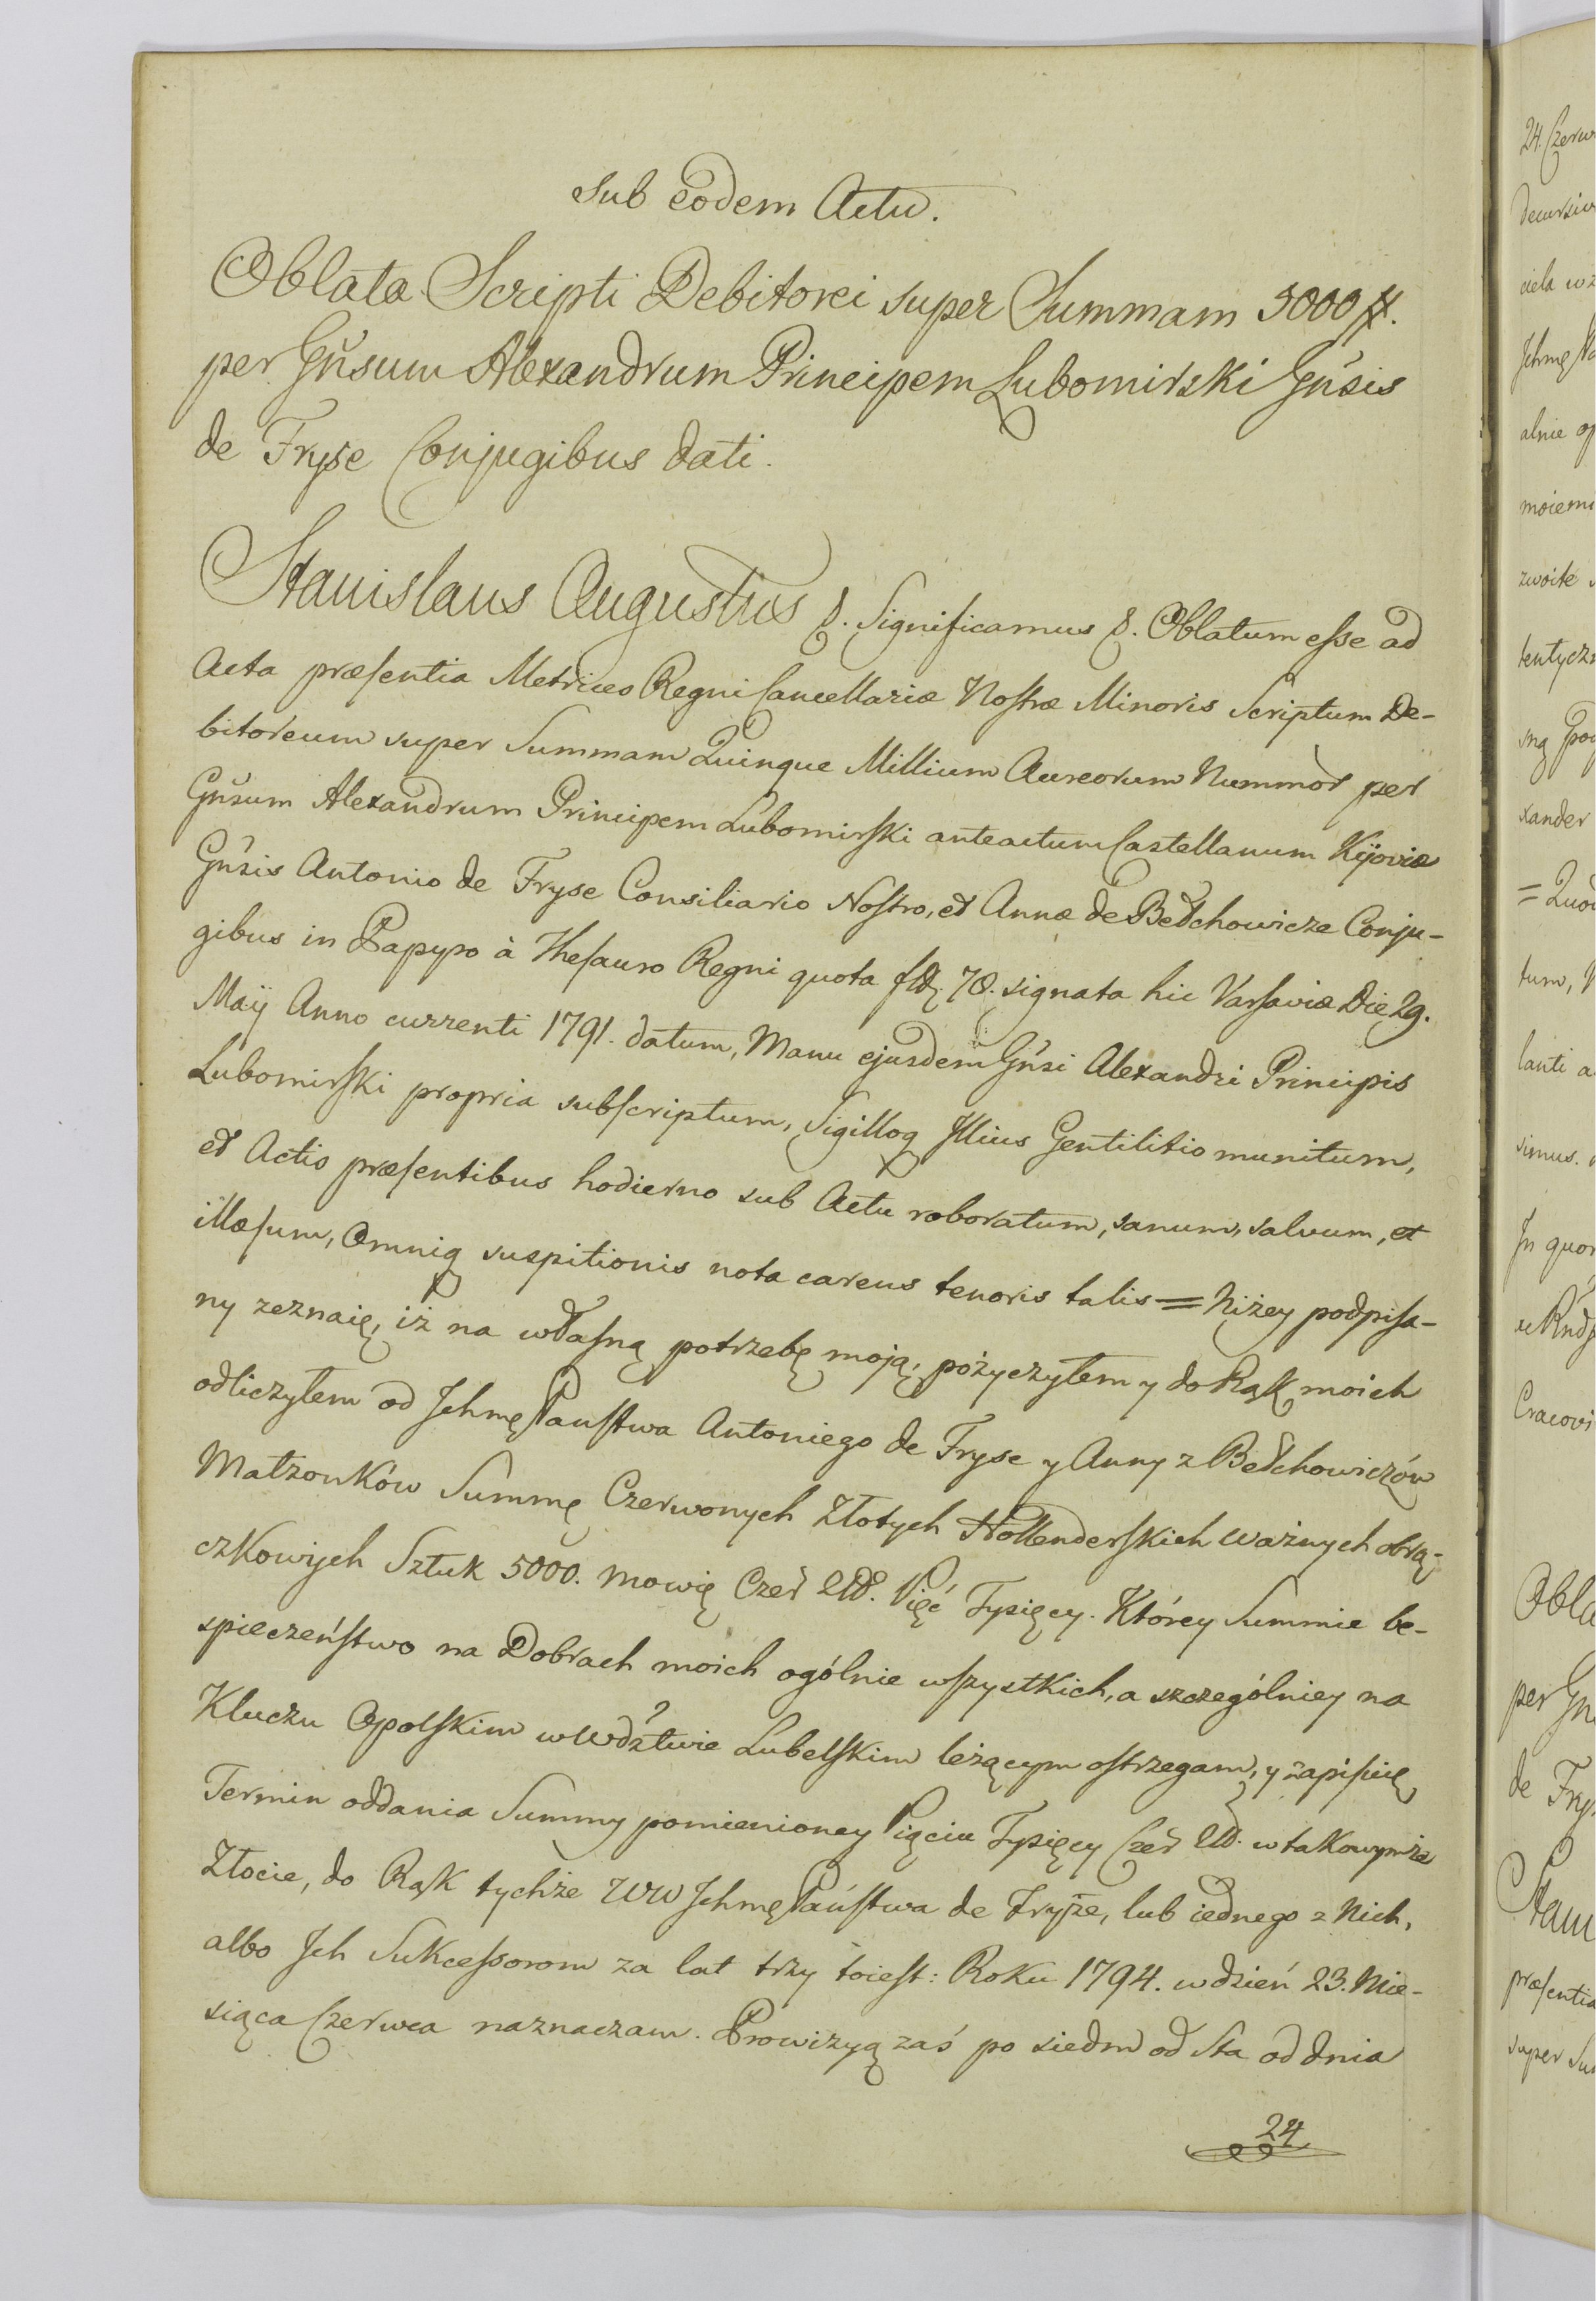 Sub eodem Actu.
Oblata Scripti Debitorei super Summam 5000 #.
per Gñsum Alexandrum Principem Lubomirski Gñsis
de Fryse Conjugibus dati.
Stanislaus Augustus &. Significamus &. Oblatum eſse ad
Acta præſentia Metrices Regni Cancellariæ Noſtræ Minoris Scriptum De-
bitoreum super Summam Quinque Millium Aureorum Nummor per
Gñsum Alexandrum Principem Lubomirſki anteactum Castellanum Kijoviæ
Gñsis Antonio de Fryse Consiliario Noſtro, et Annæ de Bełchowicze Conju-
gibus in Papyro à Theſauro Regni quota flo. 70. signata hic Varſaviæ Die 29.
Maÿ Anno currenti 1791. datum, Manu ejusdem Gñsi Alexandri Principis
Lubomirſki propria subſcriptum, Sigilloq Illius Gentilitio munitum,
et Actis præſentibus hodierno sub Actu roboratum, sanum, salvum, et
illæſum, Omniq suspitionis nota carens tenoris talis = Niżey podpiſa-
ny zeznaię, iż na właſną potrzebę moją, pożyczyłem y do Rąk moich
odliczyłem od Jchmę Pańſtwa Antoniego de Fryse y Anny z Bełchowiczów
Małżonków Summę Czerwonych Złotych Hollenderſkich ważnych obrą-
czkowych Sztuk 5000. mowię Czer Złł. Pięć Tysięcy. Którey Summie be-
spieczeńſtwo na Dobrach moich ogólnie wſzystkich, a szczególniey na
Kluczu Opolſkim w Wdztwie Lubelſkim leżącym oſtrzegam, y zapiſuię
Termin oddania Summy pomienioney Pięciu Tysięcy Czer Złł. w takowymże
Złocie, do Rąk tychże WW Jchmę Pańſtwa de Fryze, lub iednego z Nich,
albo Jch Sukceſsorom za lat trzy toieſt: Roku 1794. w dzień 23. Mie-
siąca Czerwca naznaczam. Prowizyą zaś po siedm od Sta od dnia
24